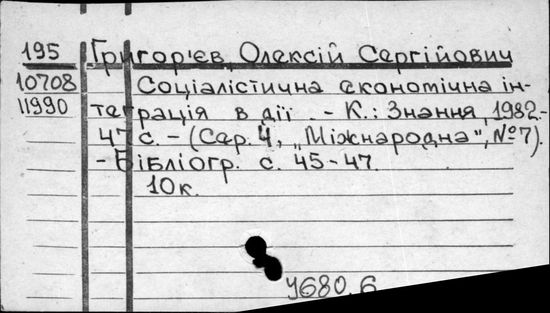 195 Григор'єв, Олексій Сергійович
10708 Соціалістична економічна ін-
11990 теграція в дії. - К.: Знання, 1982.-
47 с. - (Сер. 4, „Міжнародна", №7).
- Бібліогр. с. 45-47.
10к.
У680.6